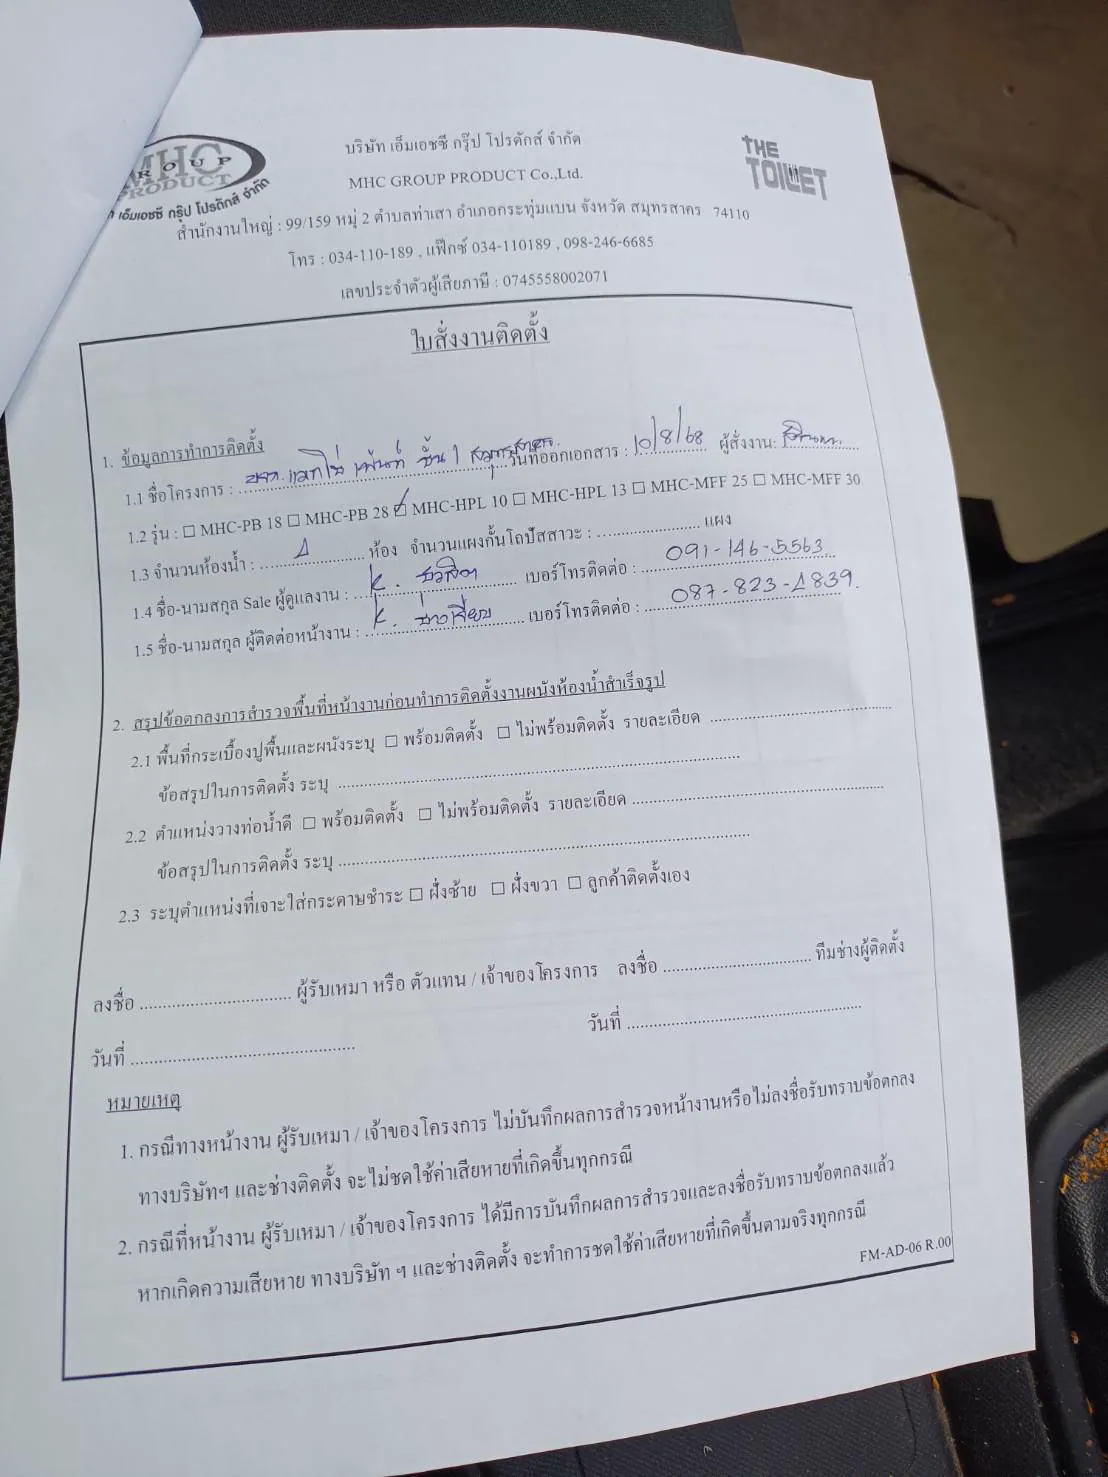 MHC
GROUP
PRODUCT
เอ็มเอชซี กรุ๊ป โปรดักส์ จำกัด
THE
TOILET
บริษัท เอ็มเอชซี กรุ๊ป โปรดักส์ จำกัด
MHC GROUP PRODUCT Co.,Ltd.
สำนักงานใหญ่ : 99/159 หมู่ 2 ตำบลท่าเสา อำเภอกระทุ่มแบน จังหวัด สมุทรสาคร 74110
โทร : 034-110-189 , แฟ๊กซ์ 034-110189 , 098-246-6685
เลขประจำตัวผู้เสียภาษี : 0745558002071
ใบสั่งงานติดตั้ง
1. ข้อมูลการทำการติดตั้ง
1.1 ชื่อโครงการ : ชั้น 1 วันที่ออกเอกสาร : 10/8/68 ผู้สั่งงาน:
1.2 รุ่น : ☐ MHC-PB 18 ☐ MHC-PB 28 ☑ MHC-HPL 10 ☐ MHC-HPL 13 ☐ MHC-MFF 25 ☐ MHC-MFF 30
1.3 จำนวนห้องน้ำ : ห้อง จำนวนแผงกั้นโถปัสสาวะ : ........................ แผง
1.4 ชื่อ-นามสกุล Sale ผู้ดูแลงาน : K. เบอร์โทรติดต่อ : 091-146-5563
1.5 ชื่อ-นามสกุล ผู้ติดต่อหน้างาน : K. เบอร์โทรติดต่อ : 087-823-1839.
2. สรุปข้อตกลงการสำรวจพื้นที่หน้างานก่อนทำการติดตั้งงานผนังห้องน้ำสำเร็จรูป
2.1 พื้นที่กระเบื้องปูพื้นและผนังระบุ ☐ พร้อมติดตั้ง ☐ ไม่พร้อมติดตั้ง รายละเอียด ........................................
ข้อสรุปในการติดตั้ง ระบุ ........................................................................................
2.2 ตำแหน่งวางท่อน้ำดี ☐ พร้อมติดตั้ง ☐ ไม่พร้อมติดตั้ง รายละเอียด ........................................................
ข้อสรุปในการติดตั้ง ระบุ ........................................................................................
2.3 ระบุตำแหน่งที่เจาะใส่กระดาษชำระ ☐ ฝั่งซ้าย ☐ ฝั่งขวา ☐ ลูกค้าติดตั้งเอง
ลงชื่อ ................................. ผู้รับเหมา หรือ ตัวแทน / เจ้าของโครงการ ลงชื่อ ................................. ทีมช่างผู้ติดตั้ง
วันที่ ................................................. วันที่ ...................................................
หมายเหตุ
1. กรณีทางหน้างาน ผู้รับเหมา / เจ้าของโครงการ ไม่บันทึกผลการสำรวจหน้างานหรือไม่ลงชื่อรับทราบข้อตกลง
ทางบริษัทฯ และช่างติดตั้ง จะไม่ชดใช้ค่าเสียหายที่เกิดขึ้นทุกกรณี
2. กรณีที่หน้างาน ผู้รับเหมา / เจ้าของโครงการ ได้มีการบันทึกผลการสำรวจและลงชื่อรับทราบข้อตกลงแล้ว
หากเกิดความเสียหาย ทางบริษัท ฯ และช่างติดตั้ง จะทำการชดใช้ค่าเสียหายที่เกิดขึ้นตามจริงทุกกรณี
FM-AD-06 R.00